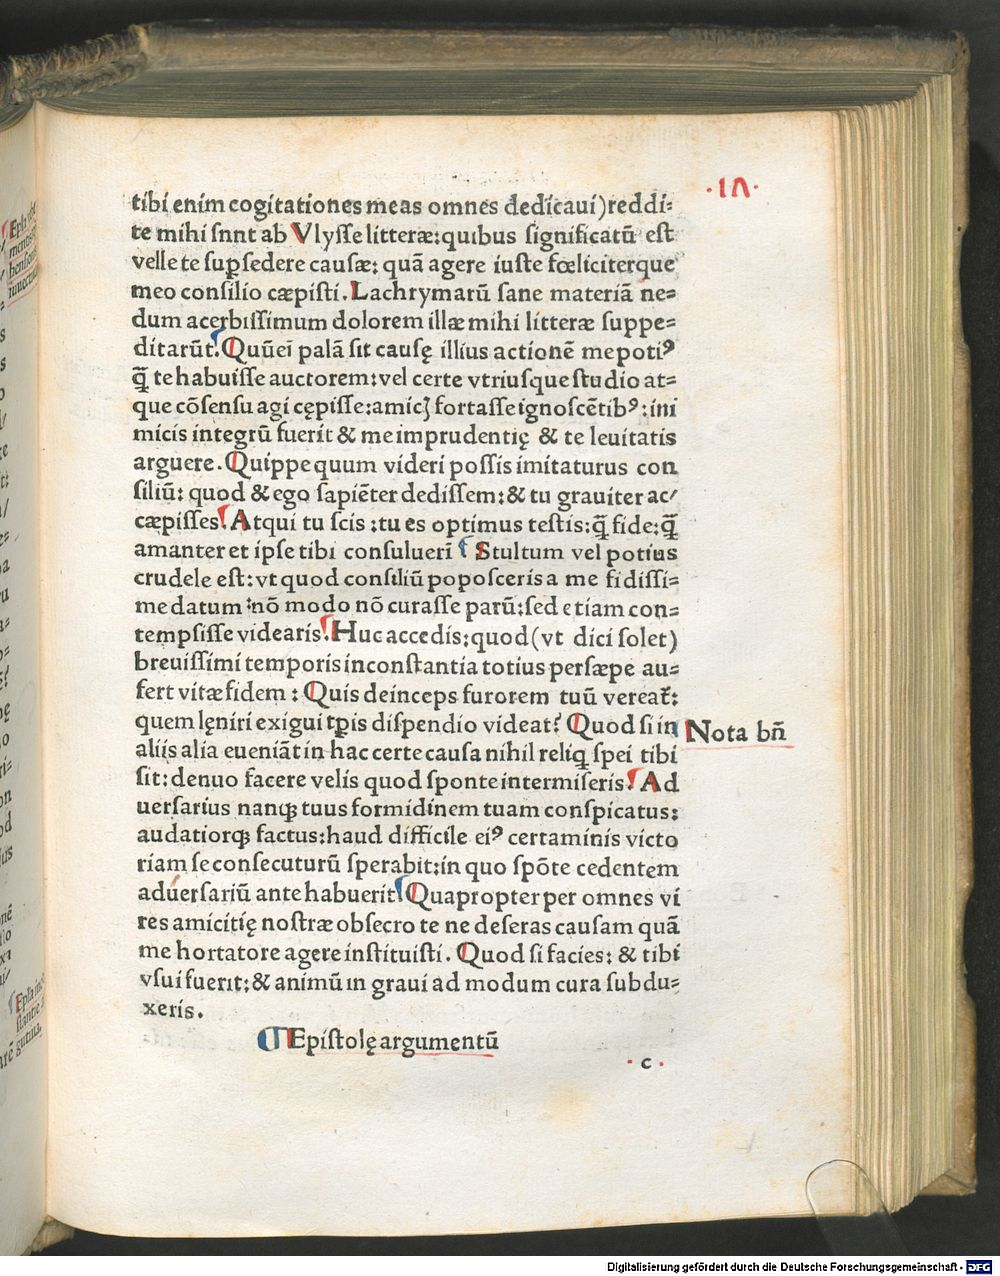 ·1Λ·
tibi enim cogitationes meas omnes dedicaui)reddi:
te mihi ſnnt ab Vlyſſe litteræ:quibus ſignificatū eſt
velle te ſuꝑſedere cauſæ: quā agere iuſte fœliciterque
meo conſilio cæpiſti. Lachrymarū ſane materiā ne=
dum acerbiſſimum dolorem illæ mihi litteræ ſuppe=
ditarūt. Quūei palā ſit cauſę illius actionē me potiꝰ
q̄ te habuiſſe auctorem: vel certe vtriuſque ſtudio at=
que cōſenſu agi cępiſſe: amicȷ fortaſſe ignoſcētibꝰ: ini
micis integrū fuerit & me imprudentię & te leuitatis
arguere. Quippe quum videri poſſis imitaturus con
ſiliū: quod & ego ſapiēter dediſſem: & tu grauiter ac/
cæpiſſes. Atqui tu ſcis: tu es optimus teſtis: q̄ fide: q̄
amanter et ipſe tibi conſuluerī Stultum vel potius
crudele eſt: vt quod conſiliū popoſceris a me fidiſſi=
me datum: nō modo nō curaſſe parū: ſed etiam con=
tempſiſſe videaris. Huc accedis: quod (vt dici ſolet)
breuiſſimi temporis inconſtantia totius perſæpe au=
fert vitæ fidem: Quis deinceps furorem tuū vereat̄:
quem lęniri exigui tꝑis diſpendio videat? Quod ſi in
aliis alia eueniāt in hac certe cauſa nihil reliq ſpei tibi
ſit: denuo facere velis quod ſponte intermiſeris. Ad
uerſarius nanqꝫ tuus formidinem tuam conſpicatus:
audatiorqꝫ factus: haud difficile eiꝰ certaminis victo
riam ſe conſecuturū ſperabit: in quo ſpōte cedentem
aduerſariū ante habuerit. Quapropter per omnes vi
res amicitię noſtræ obſecro te ne deſeras cauſam quā
me hortatore agere inſtituiſti. Quod ſi facies: & tibi
vſui fuerit: & animū in graui ad modum cura ſubdu=
xeris.
Nota bn̄
¶ Epiſtolę argumentū
· c ·
Digitalisierung gefördert durch die Deutsche Forschungsgemeinschaft - DFG